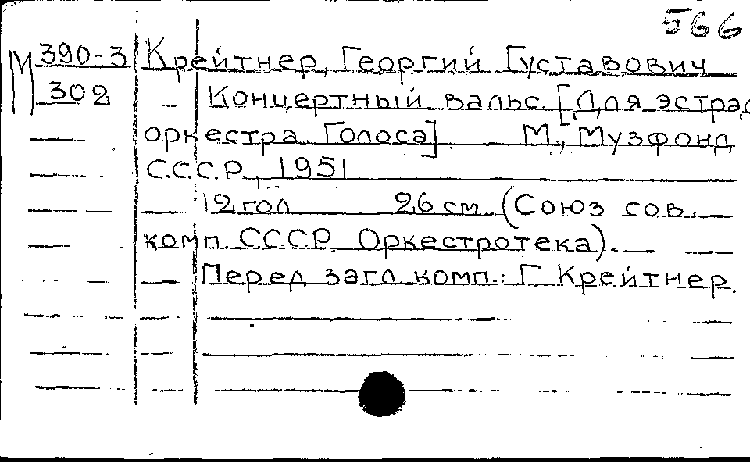 566
М 390-3 Крейтнер, Георгий Густавович
302 – Концертный вальс. [Для эстрад
оркестра. Голоса]. М., Музфонд
СССР, 1951
12 гол 26 см. (Союз сов.
комп. СССР. Оркестротека).
Перед загл. комп.: Г. Крейтнер.